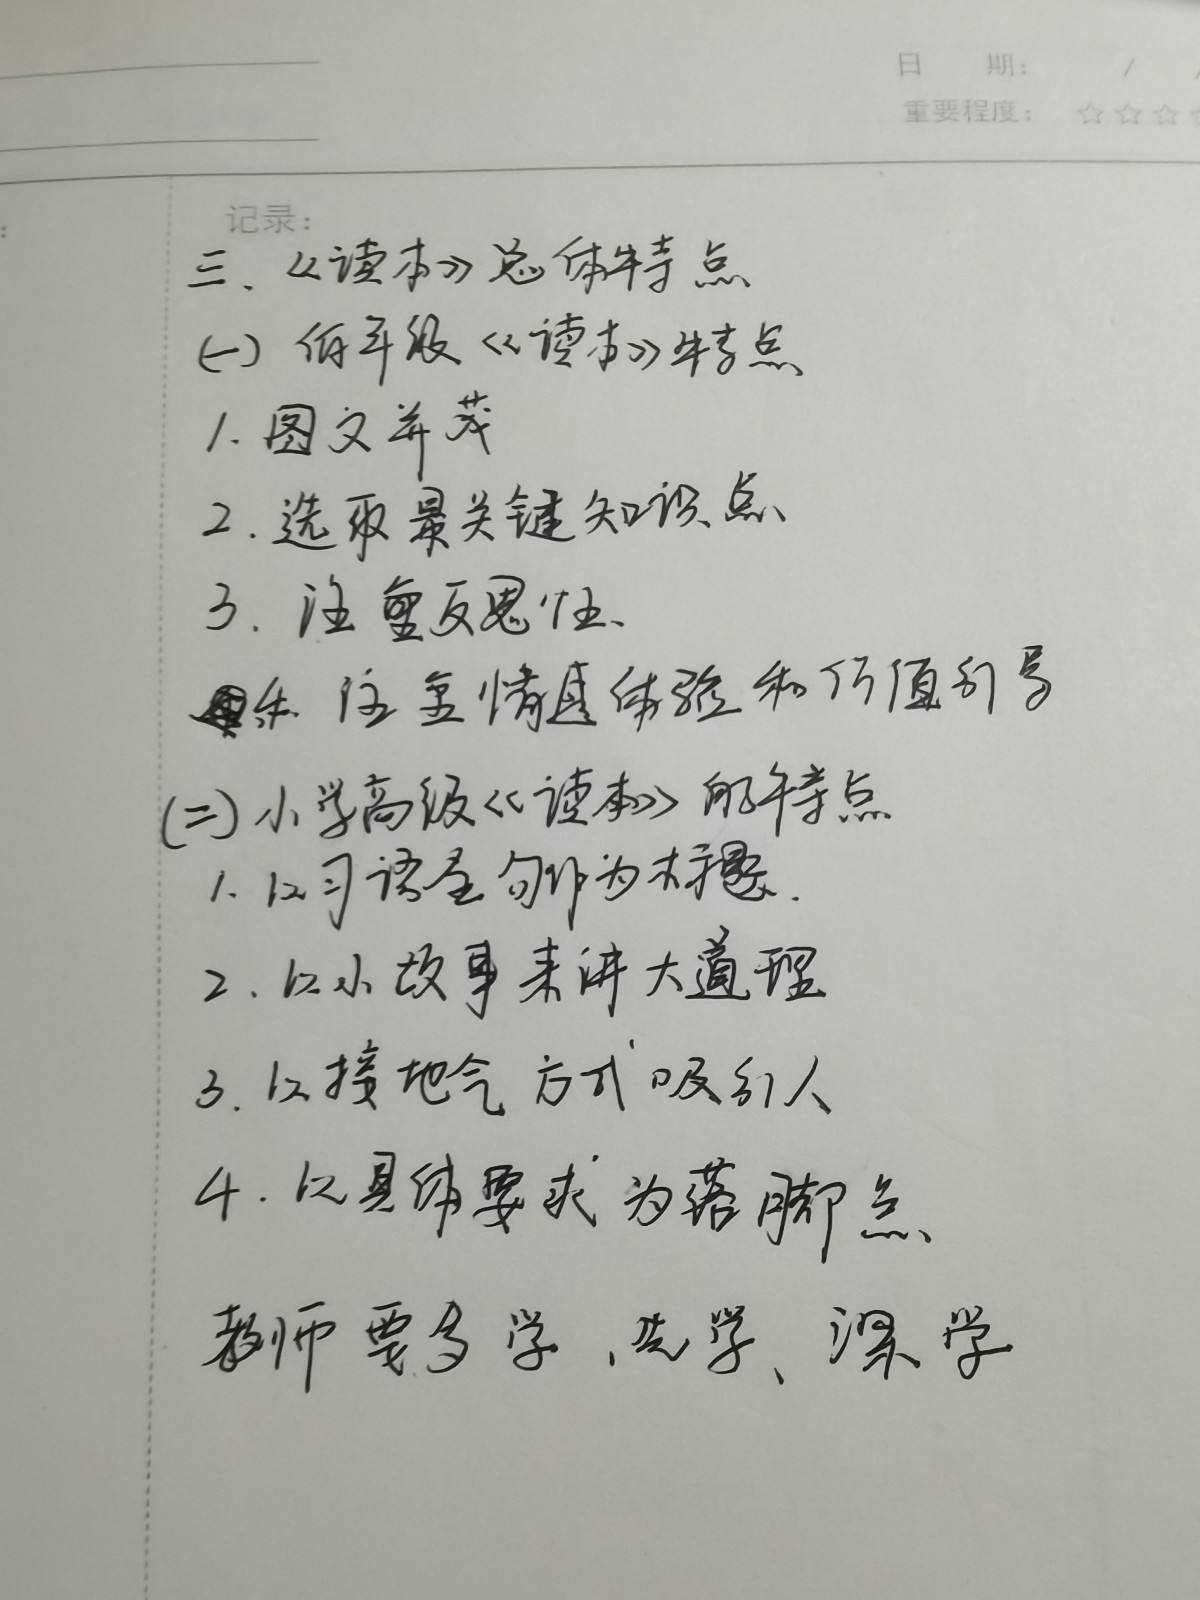 日 期: / /
重要程度: ☆☆☆☆
记录:
三、《读本》总体特点
(一) 低年级《读本》特点
1. 图文并茂
2. 选取最关键知识点
3. 注重反思性
4. 注重情 体验和价值引导
(二) 小学高级《读本》的特点
1. 以习语金句作为标题.
2. 以小故事来讲大道理
3. 以接地气方式吸引人
4. 以具体要求为落脚点
教师要多学、先学、深学